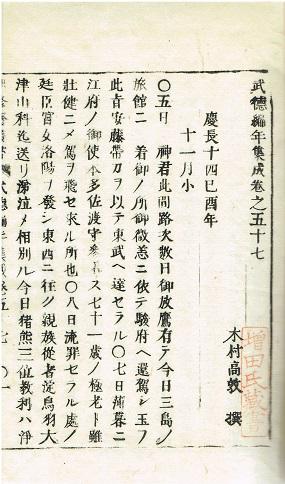 武德編年集成卷之五十七
木村高敦 撰
慶長十四己酉年
十一月小
〇五日 神君此間路次数日御放鷹有テ今日三島ノ
旅館ニ 着御ノ所御微恙ニ依テ駿府ヘ還駕シ玉フ
此旨安藤帯刀ヲ以テ東武ヘ達セラル〇七日薄暮ニ
江府ノ御使本多佐渡守参著ス七十一歳ノ極老ト雖
壮健ニメ駕ヲ飛セ来ル所也〇八日流罪セラル處ノ
廷臣官女洛陽ヲ發シ東西ニ往ク親族從者淀鳥羽大
津山科迄送リ涕泣メ相別ル今日猪熊三位教利ハ浄
増田氏藏書